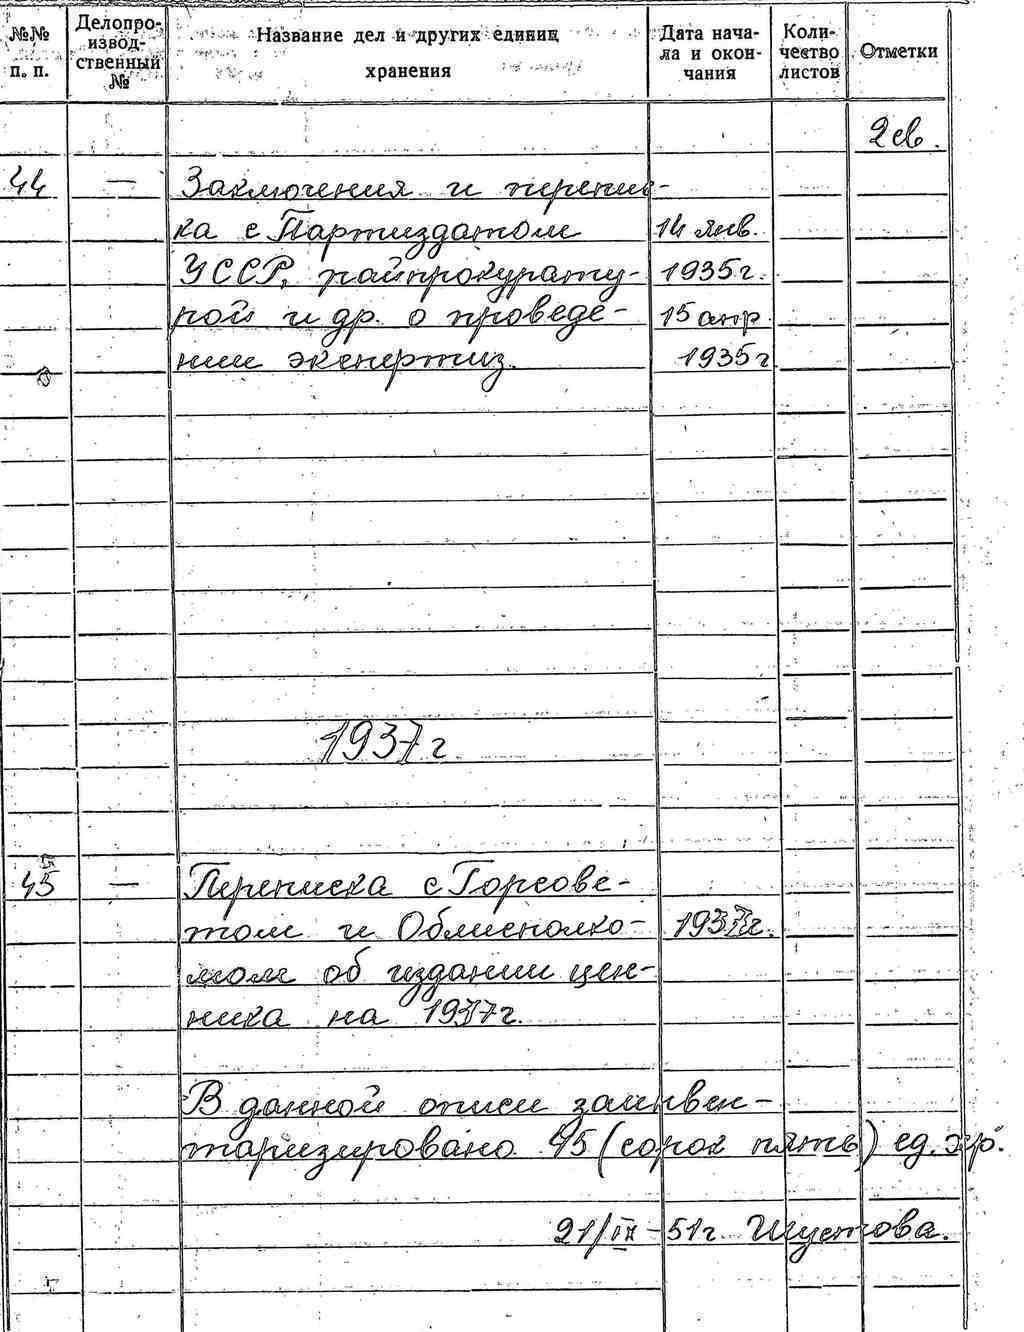 №№ п. п.
Делопро-
извод-
ственный
№
Название дел и других единиц
хранения
Дата нача-
ла и окон-
чания
Коли-
чество
листов
Отметки
2 св.
44 — Заключения и перепис-
ка с Партиздатом 14 янв.
УССР, райпрокурату- 1935г.
рой и др. о проведе- 15 апр.
нии экспертиз. 1935г
1937г
45 — Переписка с Горсове-
том и Облисполко- 1937г.
мом об издании цен-
ника на 1937г.
В данной описи заинвен-
таризировано 45 (сорок пять) ед. хр.
51г. Шустова.